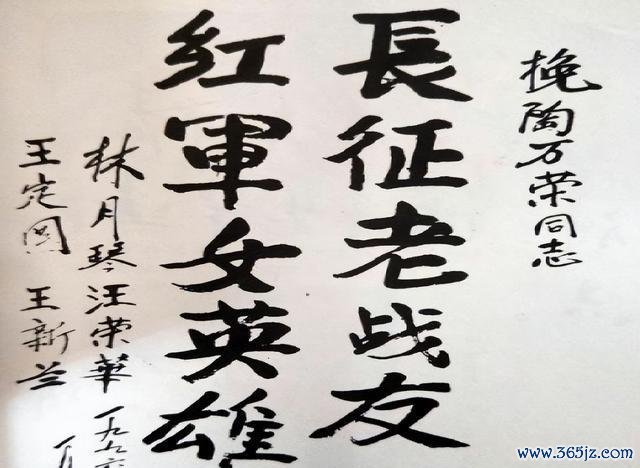 挽陶万荣同志
長征老战友
紅軍女英雄
林月琴 汪荣華 一九九六
王定国 王新兰
www.365jz.com